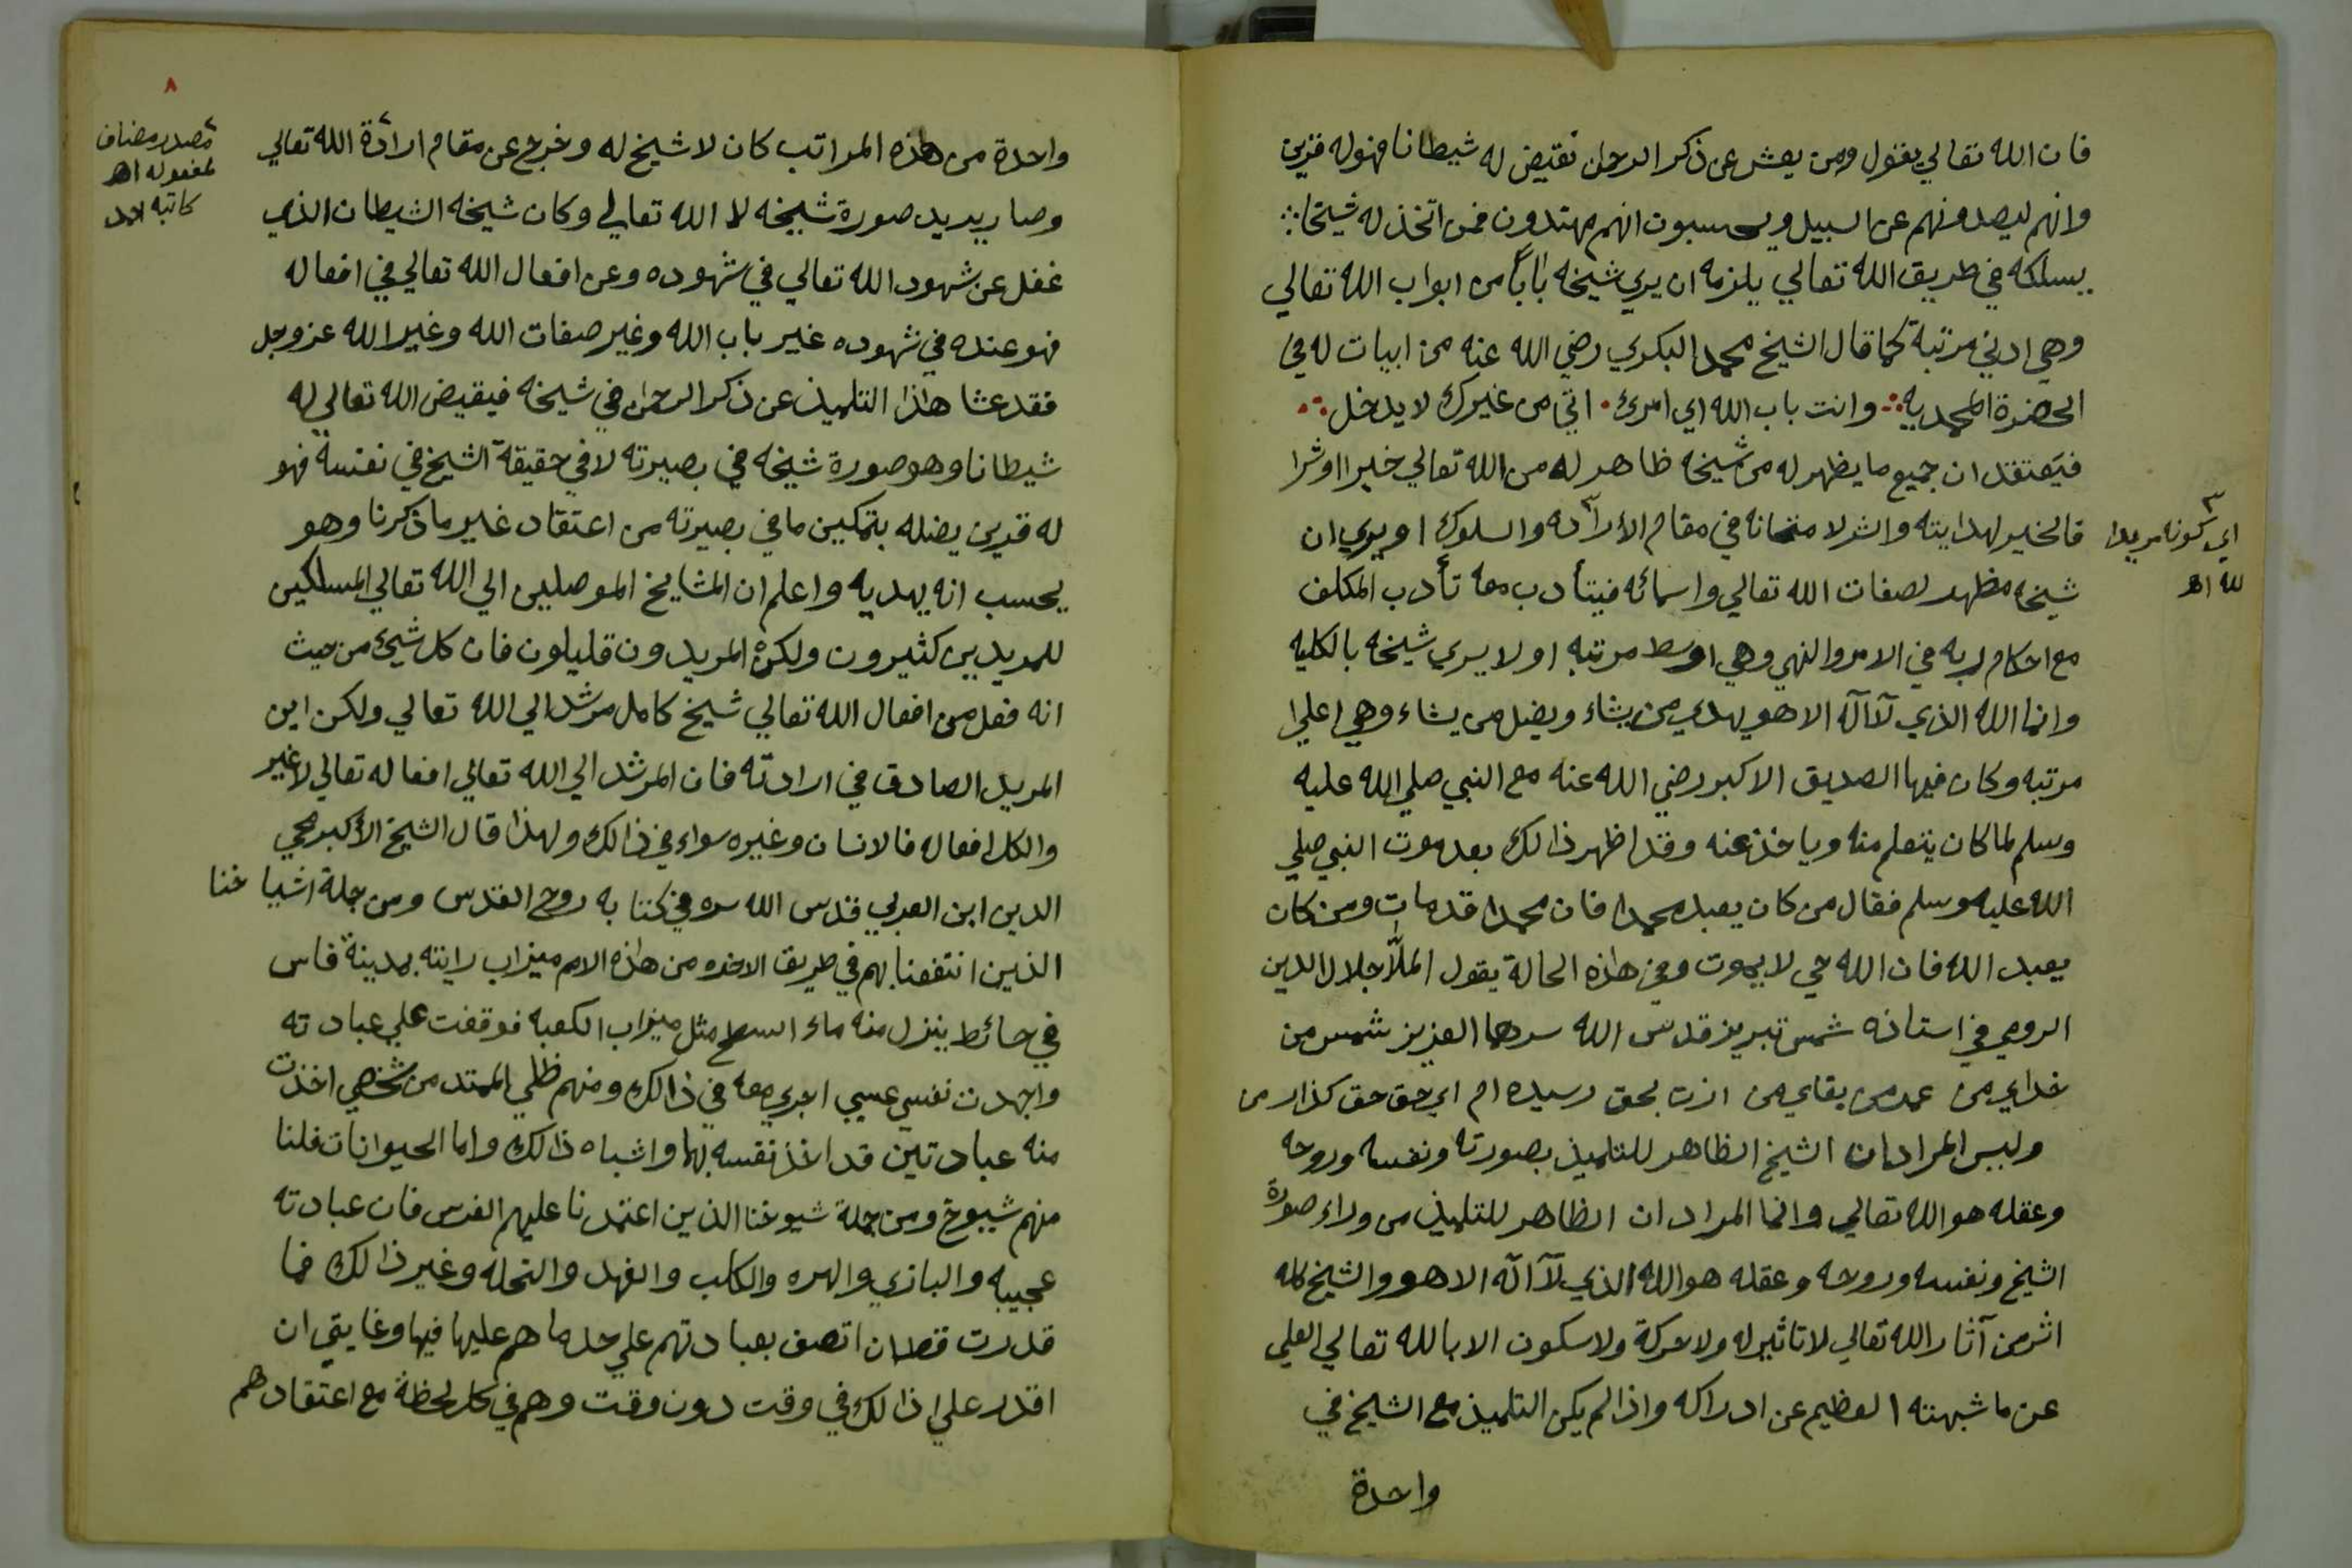 فان الله تعالي يقول ومن يعش عن ذكر الرحمن نقيض له شيطانا فهوله قرين
وانهم ليصدونهم عن السبيل ويحسبون انهم مهتدون فمن اتخذ له شيخا
يسلكه في طريق الله تعالي يلزمه ان يري شيخه بابا من ابواب الله تعالي
وهي ادني مرتبة كما قال الشيخ محمد البكري رضي الله عنه من ابيات له في
الحضرة المحمديه وانت باب الله اي امرئ اتي من غيرك لا يدخل
فيعتقد ان جميع ما يظهر له من شيخه ظاهر له من الله تعالي خيرا او شرا
فالخير لهدايته والشر لامتحانه في مقام الأرادة والسلوك او يري ان
اي كونه مريدا
لله اھ
شيخه مظهر لصفات الله تعالي واسمائه فيتأدب معه تأدب المكلف
مع احكام ربه في الامر والنهي وهي اوسط مرتبه او لا يري شيخه بالكليه
وانما الله الذي لآ آله الا هو يهدي من يشاء ويضل من يشاء وهي اعلي
مرتبه وكان فيها الصديق الاكبر رضي الله عنه مع النبي صلي الله عليه
وسلم لما كان يتعلم منه وياخذ عنه وقد اظهر ذالك بعد موت النبي صلي
الله عليه وسلم فقال من كان يعبد محمدا فان محمدا قد مات ومن كان
يعبد الله فان الله حي لا يموت وفي هاذه الحالة يقول الملّا جلال الدين
الرومي في استاذه شمس تبريز قدس الله سرهما العزيز شمس من
خداي من عمر من بقاي من ازت بحق رسيده ام اي حق حق كذار من
وليس المراد ان الشيخ الظاهر للتلميذ بصورته ونفسه وروحه
وعقله هو الله تعالي وانما المراد ان الظاهر للتلميذ من وراء صورة
الشيخ ونفسه وروحه وعقله هو الله الذي لآ آله الا هو والشيخ كله
اثر من آثار الله تعالي لا تاثير له ولا حركة ولا سكون الا بالله تعالي العلي
عن ما شبهته العظيم عن ادراكه واذا لم يكن التلميذ مع الشيخ في
واحدة
٨
واحدة من هاذه المراتب كان لا شيخ له وخرج عن مقام ارادة الله تعالي
مصدر مضاف
لمفعوله اھ
كاتبه
وصار يريد صورة شيخه لا الله تعالي وكان شيخه الشيطان الذي
غفل عن شهود الله تعالي في شهوده وعن افعال الله تعالي في افعاله
فهو عنده في شهوده غير باب الله وغير صفات الله وغير الله عز وجل
فقد عشا هاذا التلميذ عن ذكر الرحمن في شيخه فيقيض الله تعالي له
شيطانا وهو صورة شيخه في بصيرته لا في حقيقة الشيخ في نفسه فهو
له قرين يضله بتمكين ما في بصيرته من اعتقاد غير ما ذكرنا وهو
يحسب انه يهديه واعلم ان المشايخ الموصلين الي الله تعالي المسلكين
للمريدين كثيرون ولكن المريدون قليلون فان كل شيئ من حيث
انه فعل من افعال الله تعالي شيخ كامل مرشد الي الله تعالي ولكن اين
المريد الصادق في ارادته فان المرشد الي الله تعالي افعاله تعالي لا غير
والكل افعاله فالانسان وغيره سواء في ذالك ولهذا قال الشيخ الأكبر محي
الدين ابن العربي قدس الله سره في كتابه روح القدس ومن جملة اشياخنا
الذين انتفعنا بهم في طريق الاخره من هاذه الامم ميزاب رايته بمدينة فاس
في حائط ينزل منه ماء السطح مثل ميزاب الكعبه فوقفت علي عبادته
واجهدت نفسي عسي اجري معه في ذالك ومنهم ظلي الممتد من شخصي اخذت
منه عبادتين قد اخذ نفسه بهما واشباه ذالك واما الحيوانات فلنا
منهم شيوخ ومن جملة شيوخنا الذين اعتمدنا عليهم الفرس فان عبادته
عجيبه والبازي والهره والكلب والفهد والنحله وغير ذالك فما
قدرت قط ان اتصف بعبادتهم علي حد ما هم عليها فيها وغايتي ان
اقدر علي ذالك في وقت دون وقت وهم في كل لحظة مع اعتقادهم